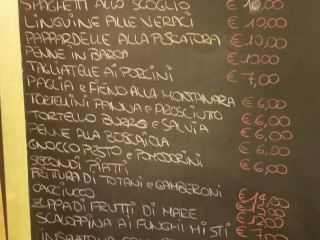 SPAGHETTI ALLO SCOGLIO € 10,00
LINGUINE ALLE VERACI € 10,00
PAPPARDELLE ALLA PISCATORA € 10,00
PENNE IN BARCA € 10,00
TAGLIATELLE AI PORCINI € 7,00
PAGLIA e FIENO ALLA MONTANARA
TORTELLINI PANNA e PROSCIUTTO € 6,00
TORTELLO BURRO e SALVIA € 6,00
PENNE ALLA BOSCAIOLA € 6,00
GNOCCO PESTO e POMODORINI € 6,00
SECONDI PIATTI € 6,00
FRITTURA DI TOTANI e GAMBERONI
CACCIUCCO € 14,00
ZUPPA DI FRUTTI DI MARE € 12,00
SCALOPPINA AI FUNGHI MISTI € 7,00